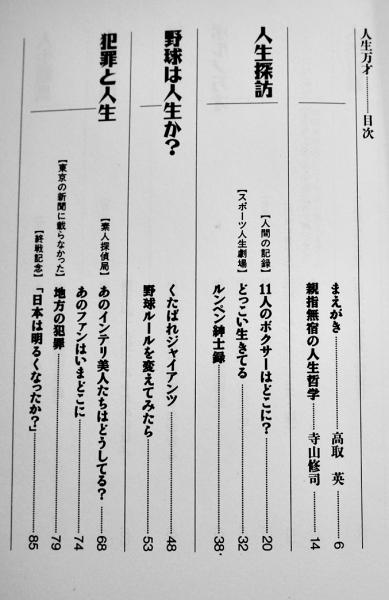 人生万才………目次
まえがき………高取 英…6
親指無宿の人生哲学………寺山修司…14
人生探訪
【人間の記録】 11人のボクサーはどこに？………20
【スポーツ人生劇場】 どっこい生きてる………32
ルンペン紳士録………38
野球は人生か？
くたばれジャイアンツ………48
野球ルールを変えてみたら………53
犯罪と人生
【素人探偵局】 あのインテリ美人たちはどうしてる？………68
あのファンはいまどこに………74
【東京の新聞に載らなかった】 地方の犯罪………79
【終戦記念】 「日本は明るくなったか？」………85